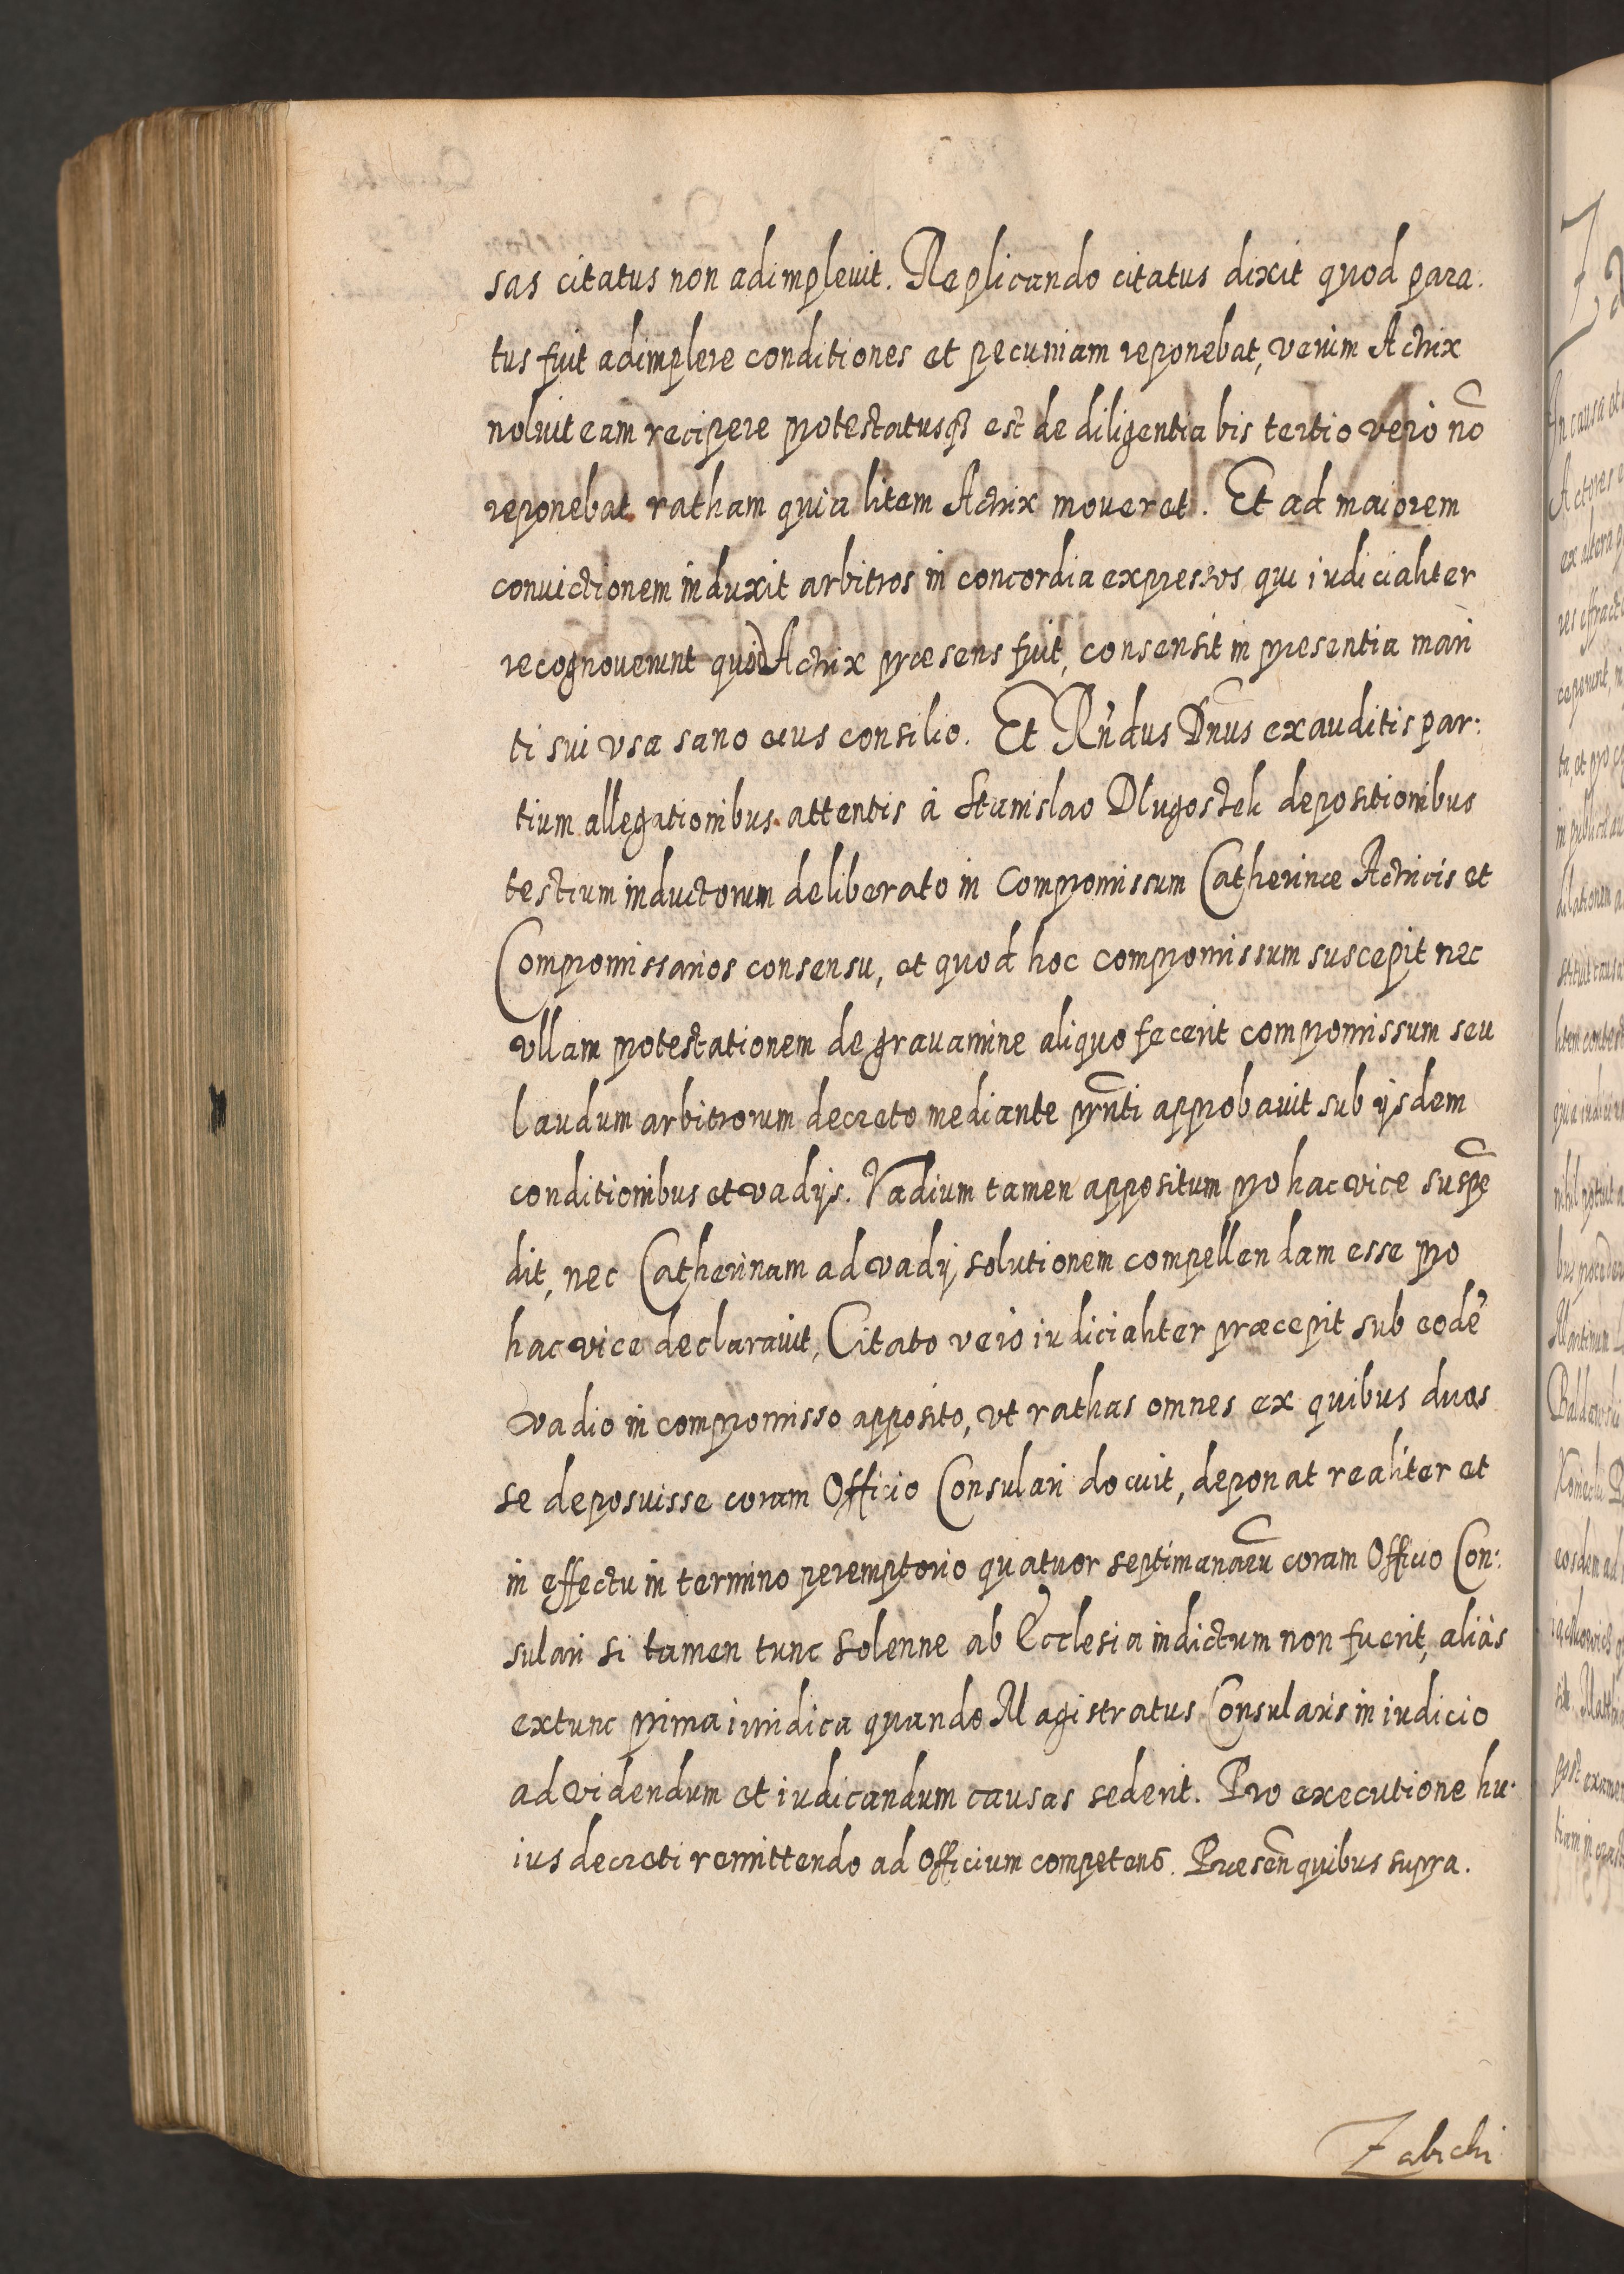 sas citatus non adimplevit. Replicando citatus dixit quod para.
tus fuit adimplere conditiones et pecuniam reponebat, verùm Actrix
noluit eam recipere protestatusqꝫ est de diligentia bis tertio verò nõ
reponebat ratham quia litem Actrix moveret. Et ad maiorem
convictionem induxit arbitros in concordia expressos qui iudicialiter
recognoverunt quòd Actrix præsens fuit, consensit in presentia mari
ti sui vsa sano eius consilio. Et Rñdus Dñus exauditis par:
tium allegationibus attentis à Stanislao Dlugostek depositionibus
testium inductorum deliberato in Compromissum Catherinæ Actricis et
Compromissarios consensu, et quod hoc compromissum suscepit nec
vllam protestationem de gravamine aliquo fecerit compromissum seu
laudum arbitrorum decreto mediante prñti approbavit sub ijsdem
conditionibus et vadijs. Vadium tamen appositum pro hac vice suspẽ
dit, nec Catherinam ad vadij solutionem compellendam esse pro
hac vice declaravit, Citato verò iudicialiter præcepit sub eodẽ
vadio in compromisso apposito, vt rathas omnes ex quibus duas
se deposuisse coram Officio Consulari docuit, deponat realiter et
in effectu in termino peremptorio quatuor septimanarũ coram Officio Con:
sulari si tamen tunc solenne ab Ecclesia indictum non fuerit, aliàs
extunc prima iuridica quando Magistratus Consularis in iudicio
ad videndum et iudicandum causas sederit. Pro executione hu:
ius decreti remittendo ad Officium competens. Præseñ quibus supra.
Zabichi